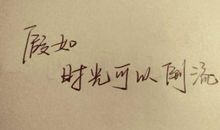 假如
时光可以倒流